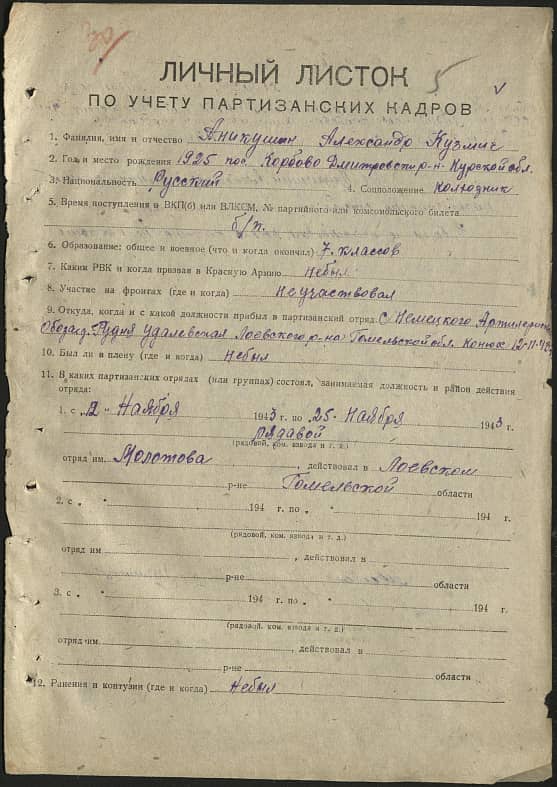 5
ЛИЧНЫЙ ЛИСТОК
ПО УЧЕТУ ПАРТИЗАНСКИХ КАДРОВ
1. Фамилия, имя и отчество Аникушин Александр Кузмич
2. Год и место рождения 1925 пос. Корбово Дмитровски р-н Курской обл.
3. Национальность Русский 4. Соцположение Колхозник
5. Время поступления в ВКП(б) или ВЛКСМ, № партийного или комсомольского билета
б/п.
6. Образование: общее и военное (что и когда окончил) 7 классов
7. Каким РВК и когда призван в Красную Армию Небыл
8. Участие на фронтах (где и когда) Неучаствовал
9. Откуда, когда и с какой должности прибыл в партизанский отряд с Немецкого Артилерий
Обоза д. Рудня Удалевская Лоевского р-на Гомельской обл. Конюх 12-11-43
10. Был ли в плену (где и когда) Небыл
11. В каких партизанских отрядах (или группах) состоял, занимаемая должность и район действия
отряда:
1. с 12 " Ноября 1943 г. по 25 " Ноября 1943 г.
рядавой
(рядовой, ком. взвода и т. д.)
отряд им. Молотова, действовал в Лоевском
р-не Гомельской области
2. с " " 194 г. по " " 194 г.
(рядовой, ком. взвода и т. д.)
отряд им , действовал в
р-не области
3. с " " 194 г. по " " 194 г.
(рядовой, ком. взвода и т. д.)
отряд им. , действовал в
р-не области
12. Ранения и контузии (где и когда) Небыл